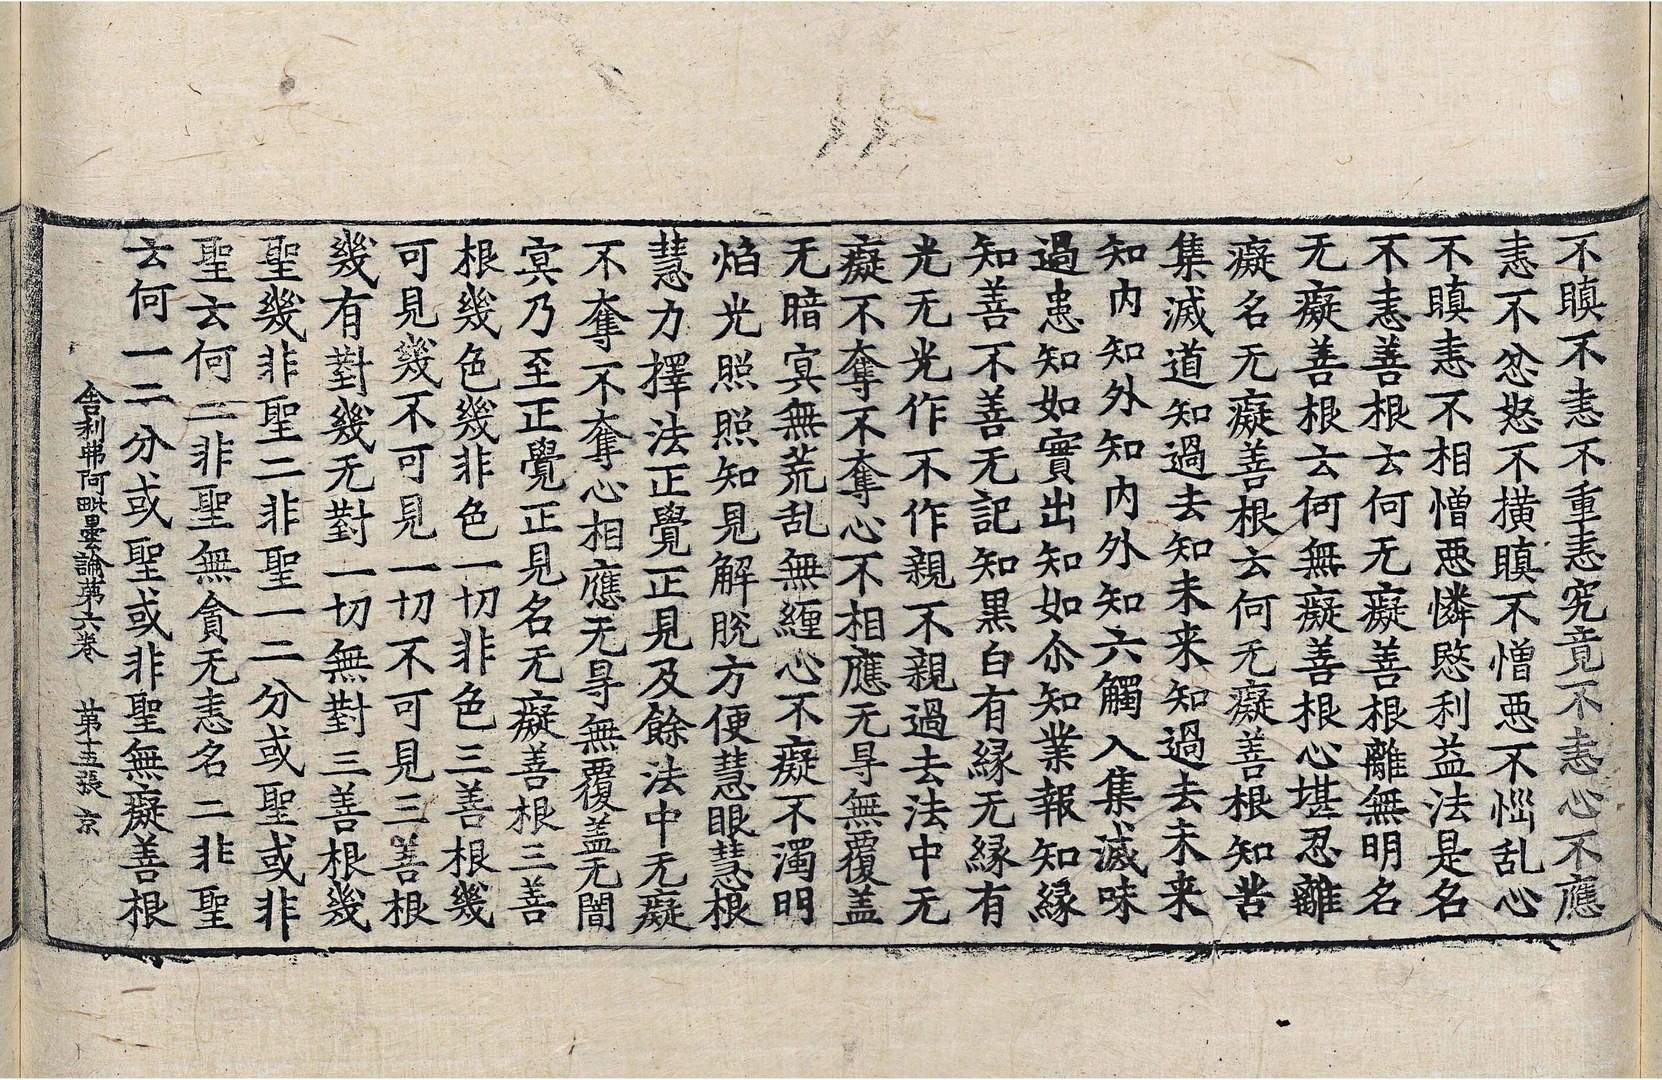 不瞋不恚不重恚究竟不恚心不應
恚不忿怒不橫瞋不憎惡不惱乱心
不瞋恚不相憎惡憐愍利益法是名
不恚善根云何无癡善根離無明名
无癡善根云何無癡善根心堪忍離
癡名无癡善根云何无癡善根知苦
集滅道知過去知未来知過去未来
知内知外知内外知六觸入集滅味
過患知如實出知如尒知業報知縁
知善不善无記知黒白有縁无縁有
光无光作不作親不親過去法中无
癡不奪不奪心不相應无㝵無覆盖
无暗㝠無荒乱無纏心不癡不濁明
焰光照照知見解脫方便慧眼慧根
慧力擇法正覺正見及餘法中无癡
不奪不奪心相應无㝵無覆盖无闇
㝠乃至正覺正見名无癡善根三善
根幾色幾非色一切非色三善根幾
可見幾不可見一切不可見三善根
幾有對幾无對一切無對三善根幾
聖幾非聖二非聖一二分或聖或非
聖云何二非聖無貪无恚名二非聖
云何一二分或聖或非聖無癡善根
舍利弗阿毗曇論苐六卷 苐十五張 京